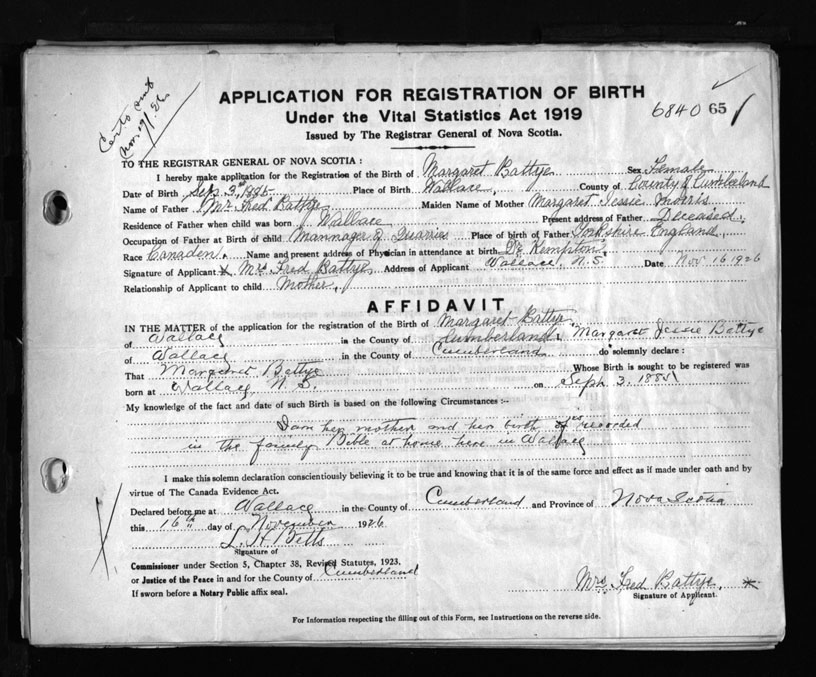 Certo sent
Nov. 19/26
APPLICATION FOR REGISTRATION OF BIRTH
Under the Vital Statistics Act 1919
6840 65
Issued by The Registrar General of Nova Scotia.
TO THE REGISTRAR GENERAL OF NOVA SCOTIA:
I hereby make application for the Registration of the Birth of Margaret Battye Sex Female
Date of Birth Sep. 3rd 1885 Place of Birth Wallace, County of County of Cumberland
Name of Father Mr Fred Battye Maiden Name of Mother Margaret Jessie Morris
Residence of Father when child was born Wallace Present address of Father Deceased.
Occupation of Father at Birth of child Mannager of Quarrie Place of birth of Father Yorkshire England
Race Canaden. Name and present address of Physician in attendance at birth Dr Kempton.
Signature of Applicant X Mrs Fred Battye Address of Applicant Wallace, N.S. Date Nov 16 1926
Relationship of Applicant to child Mother.
AFFIDAVIT
IN THE MATTER of the application for the registration of the Birth of Margaret Battye
of Wallace in the County of Cumberland. Margaret Jessie Battye
of Wallace in the County of Cumberland do solemnly declare:
That Margaret Battye Whose Birth is sought to be registered was
born at Wallace, N.S. on Seph. 3. 1885
My knowledge of the fact and date of such Birth is based on the following Circumstances:--
I am her mother and her birth is recorded
in the family Bible at home here in Wallace
I make this solemn declaration conscientiously believing it to be true and knowing that it is of the same force and effect as if made under oath and by
virtue of The Canada Evidence Act.
Declared before me at Wallace in the County of Cumberland and Province of Nova Scotia
this 16th day of November 1926
L. H. Betts
Signature of
Commissioner under Section 5, Chapter 38, Revised Statutes, 1923.
or Justice of the Peace in and for the County of Cumberland
If sworn before a Notary Public affix seal.
Mrs Fred Battye. X
Signature of Applicant.
For Information respecting the filling out of this Form, see Instructions on the reverse side.